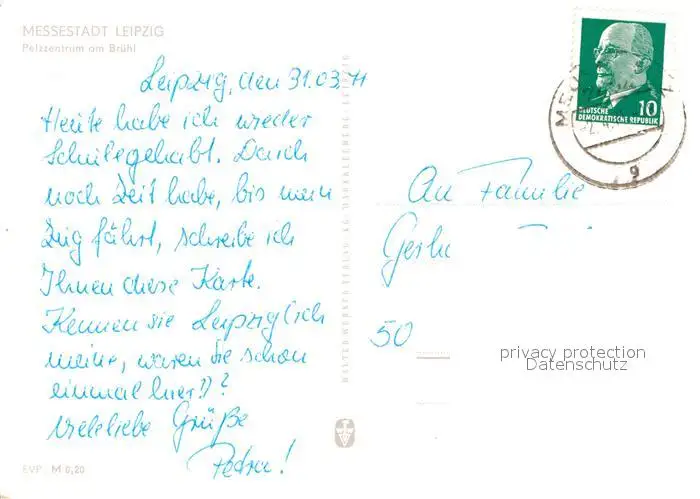 MESSESTADT LEIPZIG
Pelzzentrum am Brühl
Leipzig, den 31.03.71
Heute habe ich wieder
Schule gehabt. Da ich
noch Zeit habe, bis mein
Zug fährt, schreibe ich
Ihnen diese Karte.
Kennen Sie Leipzig (ich
meine, waren Sie schon
einmal hier)?
Viele liebe Grüße
Petra!
EVP M 0,20
10
DEUTSCHE
DEMOKRATISCHE REPUBLIK
An Familie
50
privacy protection
Datenschutz